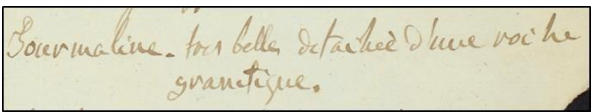 Tourmaline - tres belles detachée d'une roche
granitique.